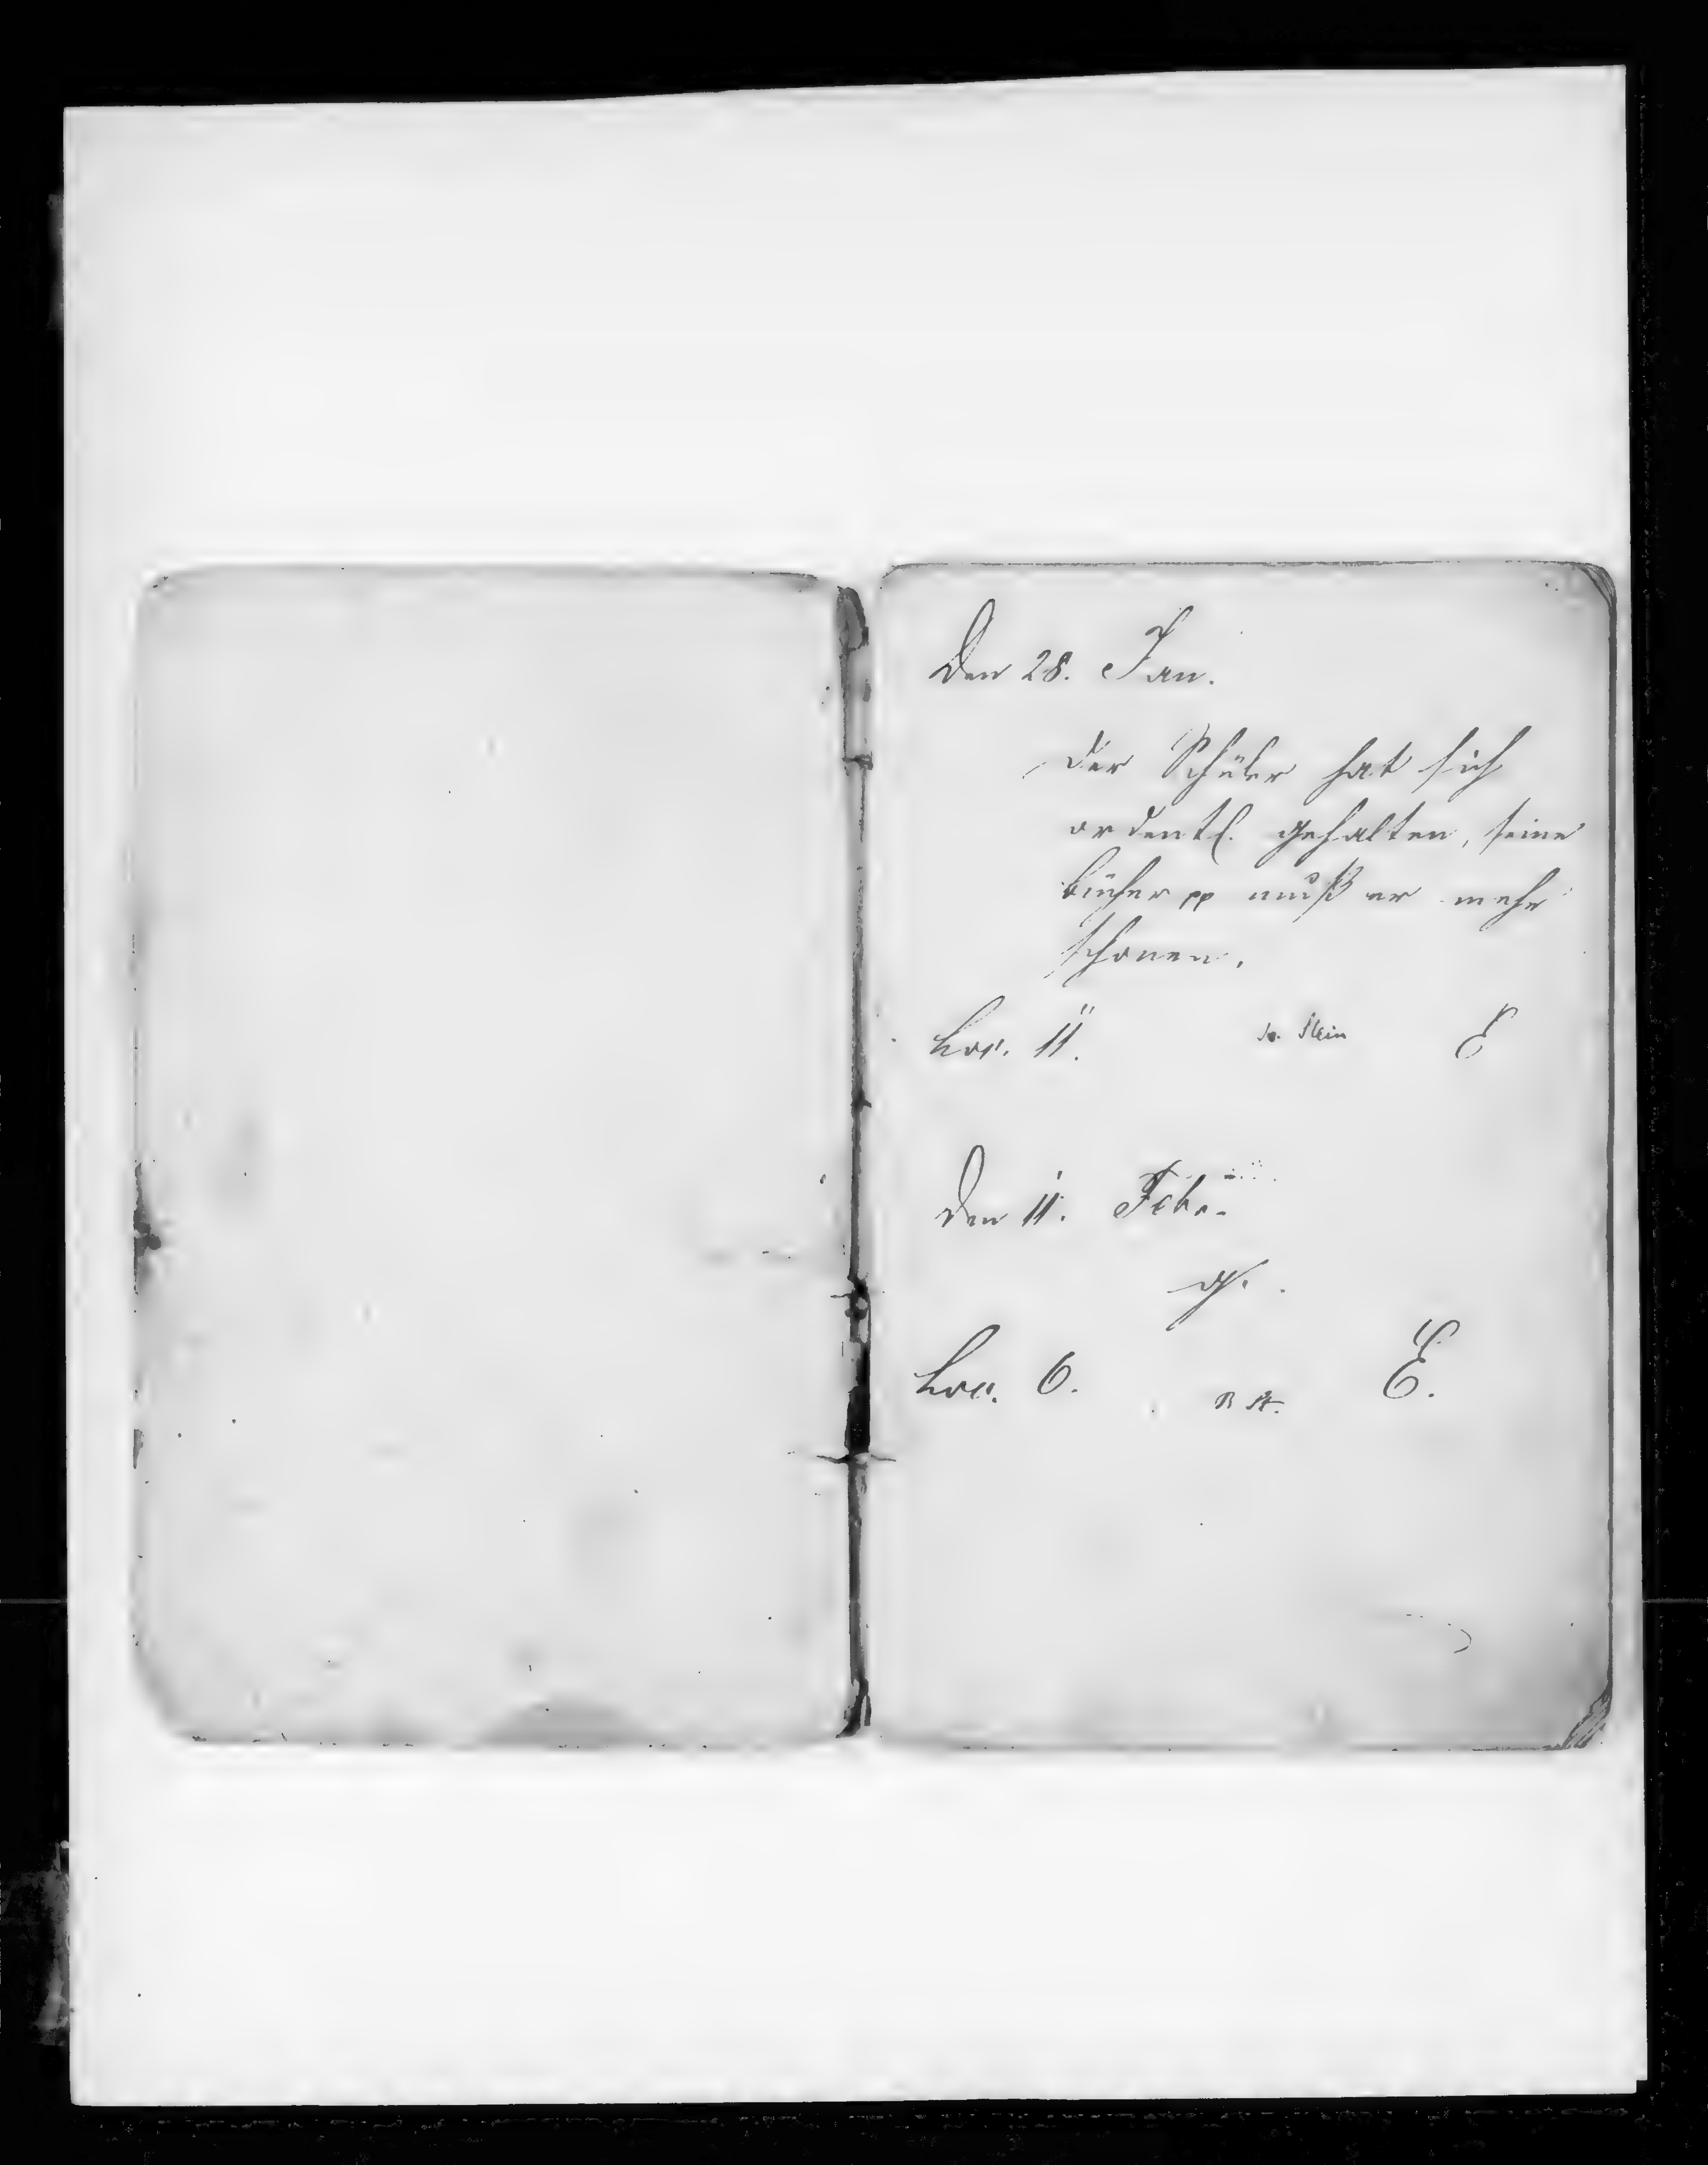 Den 28. Jan.
Der Schüler hat sich
ordentl. gehalten, seine
Bücher pp muß er mehr
schonen.
Loc. 11. Stein E
Den 11. Febr.
g.
Loc. 6. St. E.